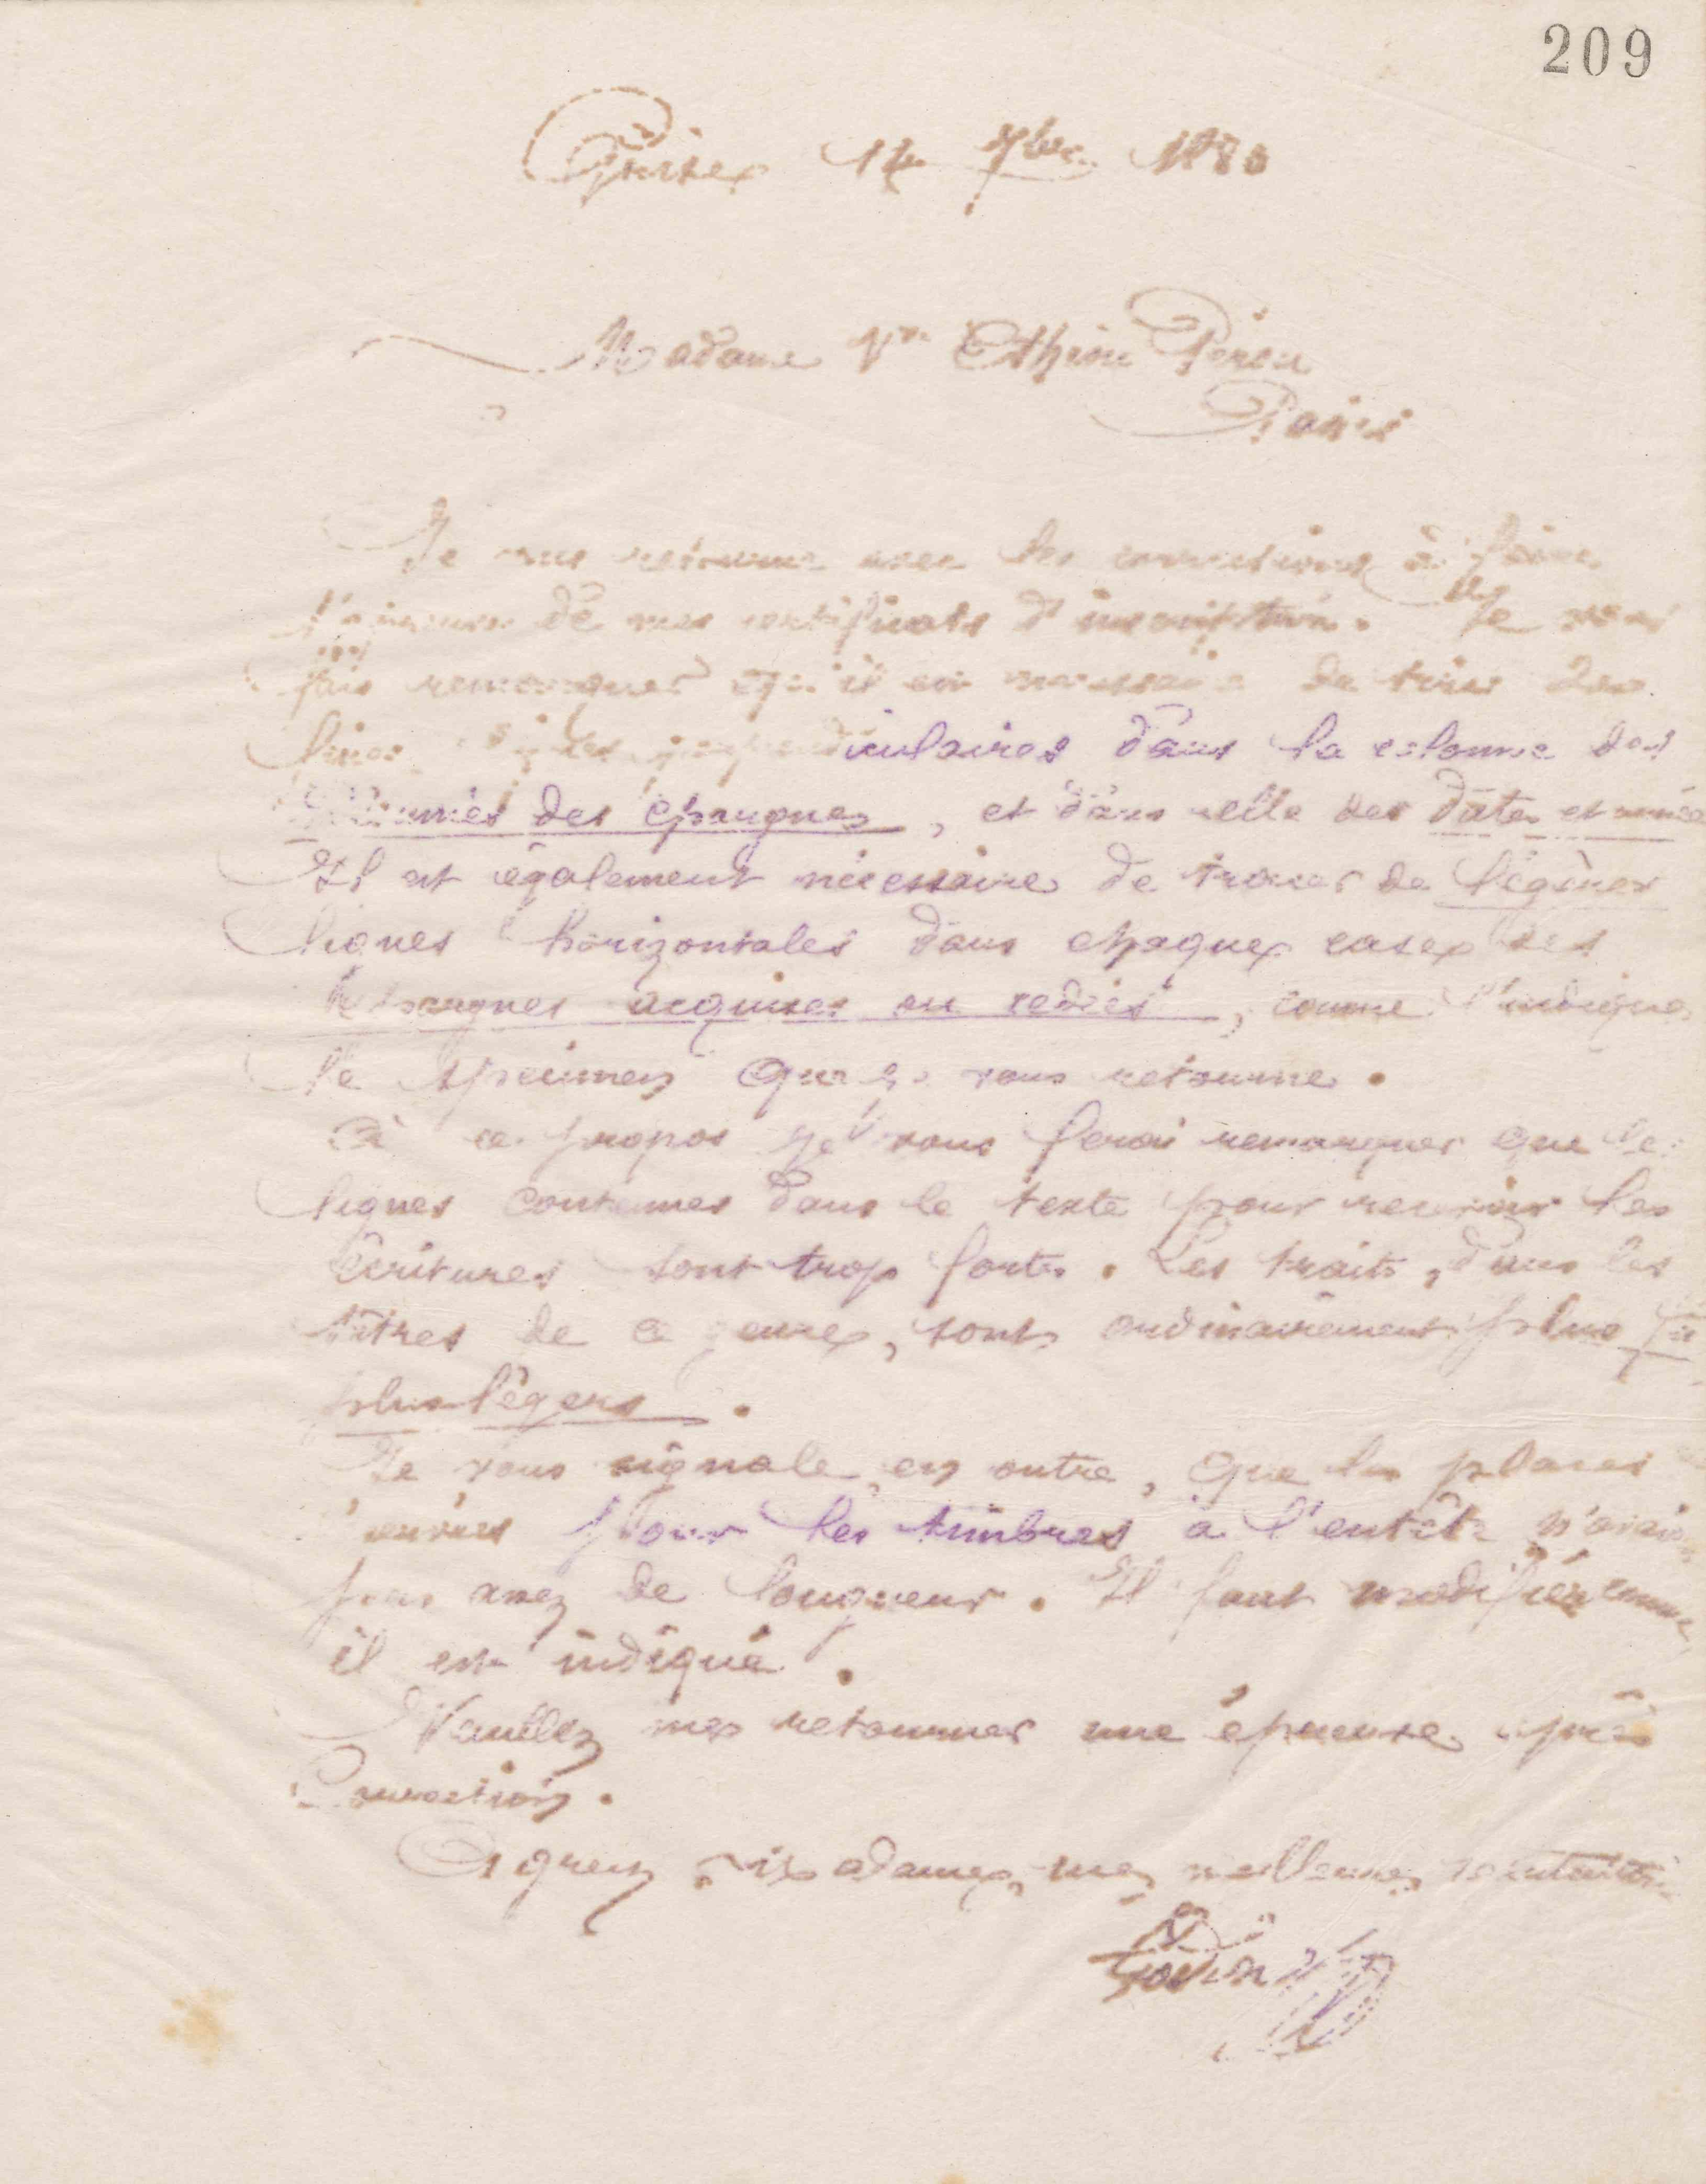 209
Guise 14 7bre 1880
Madame Vve Ethiou Pérou
Paris
Je vous retourne avec les corrections à faire
l'épreuve de mes certificats d'inscription. Je vous
fais remarquer qu'il est nécessaire de tirer des
lignes perpendiculaires dans la colonne des
des épargnes, et dans celle des dates et année
Il est également nécessaire de tracer de légères
lignes horizontales dans chaque case des
Epargnes acquises ou cédées, comme l'indique
le spécimen que je vous retourne.
A ce propos je vous ferai remarquer que les
lignes contenues dans le texte pour recevoir les
écritures sont trop fortes. Les traits, dans les
titres de ce genre, sont ordinairement plus fin
plus légers.
Je vous signale, en outre, que les places
pour les timbres à l'entête n'avaient
pas assez de longueur. Il faut modifier comme
il est indiqué.
Veuillez me retourner une épreuve après
Correction.
Agréez Madame, mes meilleures salutations
Godin